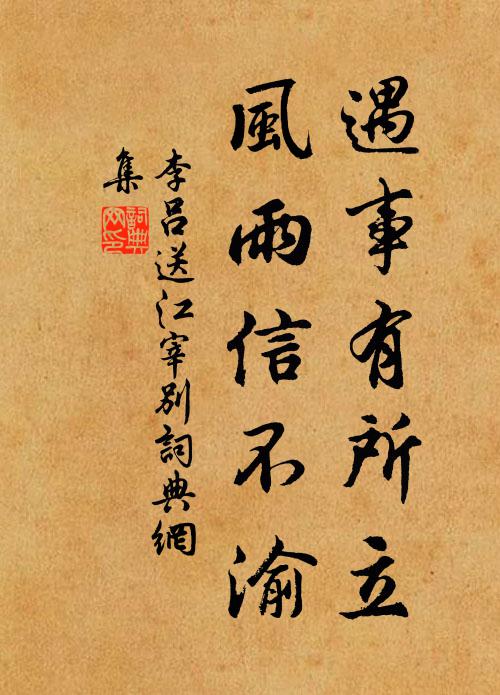 遇事有所立
風雨信不渝
李呂送江宰別詞典網
集
詞典
网印